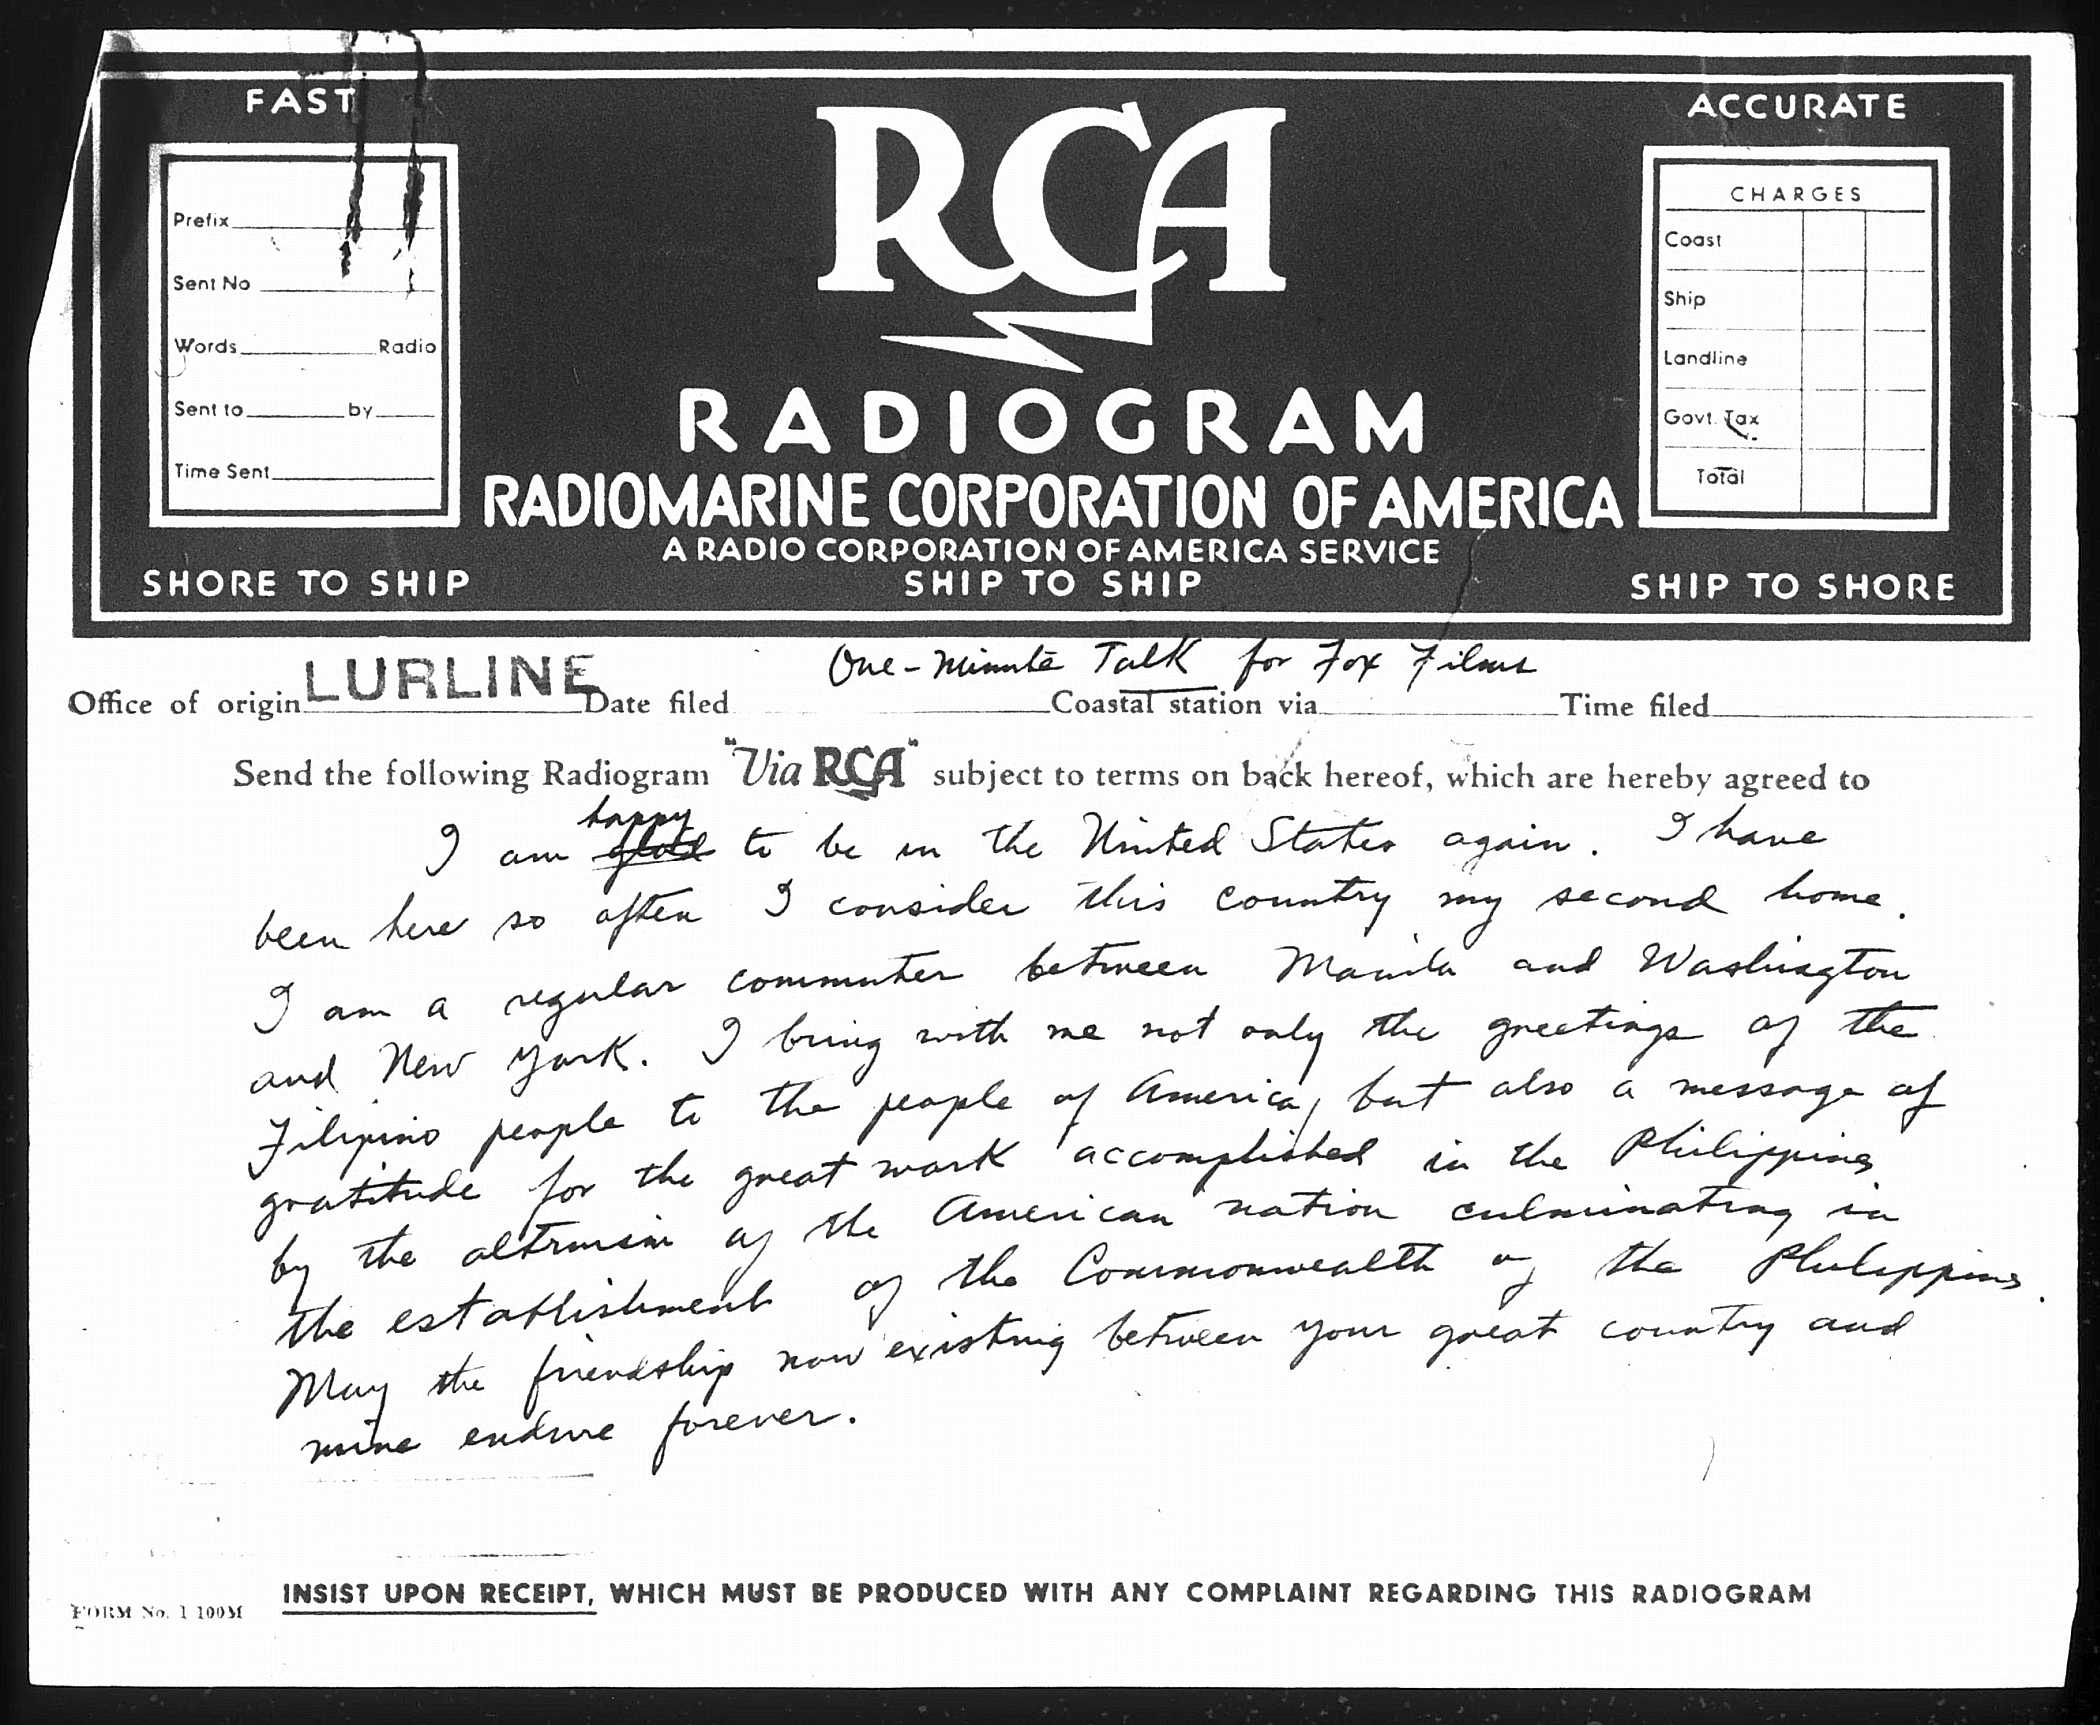 FAST
ACCURATE
RCA
Prefix
Sent No
Words Radio
Sent to by
Time Sent
CHARGES
Coast
Ship
Landline
Govt. Tax
Total
RADIOGRAM
RADIOMARINE CORPORATION OF AMERICA
A RADIO CORPORATION OF AMERICA SERVICE
SHORE TO SHIP
SHIP TO SHIP
SHIP TO SHORE
One-Minute Talk for Fox Films
Office of origin LURLINE Date filed Coastal station via Time filed
Send the following Radiogram "Via RCA" subject to terms on back hereof, which are hereby agreed to
happy
I am glad to be in the United States again. I have
been here so often I consider this country my second home.
I am a regular commuter between Manila and Washington
and New York. I bring with me not only the greetings of the
Filipino people to the people of America, but also a message of
gratitude for the great work accomplished in the Philippines
by the altruism of the American nation culminating in
the establishment of the Commonwealth of the Philippines.
May the friendship now existing between your great country and
mine endure forever.
FORM No. 1 100M
INSIST UPON RECEIPT, WHICH MUST BE PRODUCED WITH ANY COMPLAINT REGARDING THIS RADIOGRAM